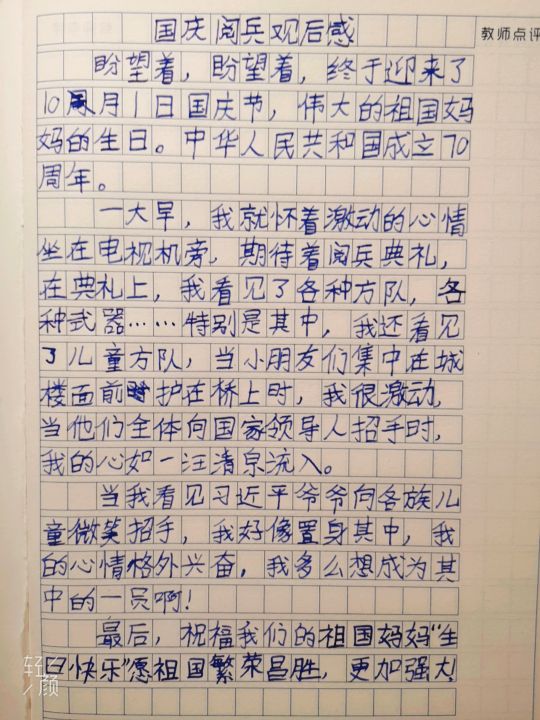 国庆阅兵观后感
教师点评
盼望着，盼望着，终于迎来了
10月1日国庆节，伟大的祖国妈
妈的生日。中华人民共和国成立70
周年。
一大早，我就怀着激动的心情
坐在电视机旁，期待着阅兵典礼，
在典礼上，我看见了各种方队，各
种武器……特别是其中，我还看见
了儿童方队，当小朋友们集中在城
楼面前护在桥上时，我很激动，
当他们全体向国家领导人招手时，
我的心如一汪清泉流入。
当我看见习近平爷爷向各族儿
童微笑招手，我好像置身其中，我
的心情格外兴奋，我多么想成为其
中的一员啊！
最后，祝福我们的祖国妈妈“生
日快乐”愿祖国繁荣昌胜，更加强大！
轻颜